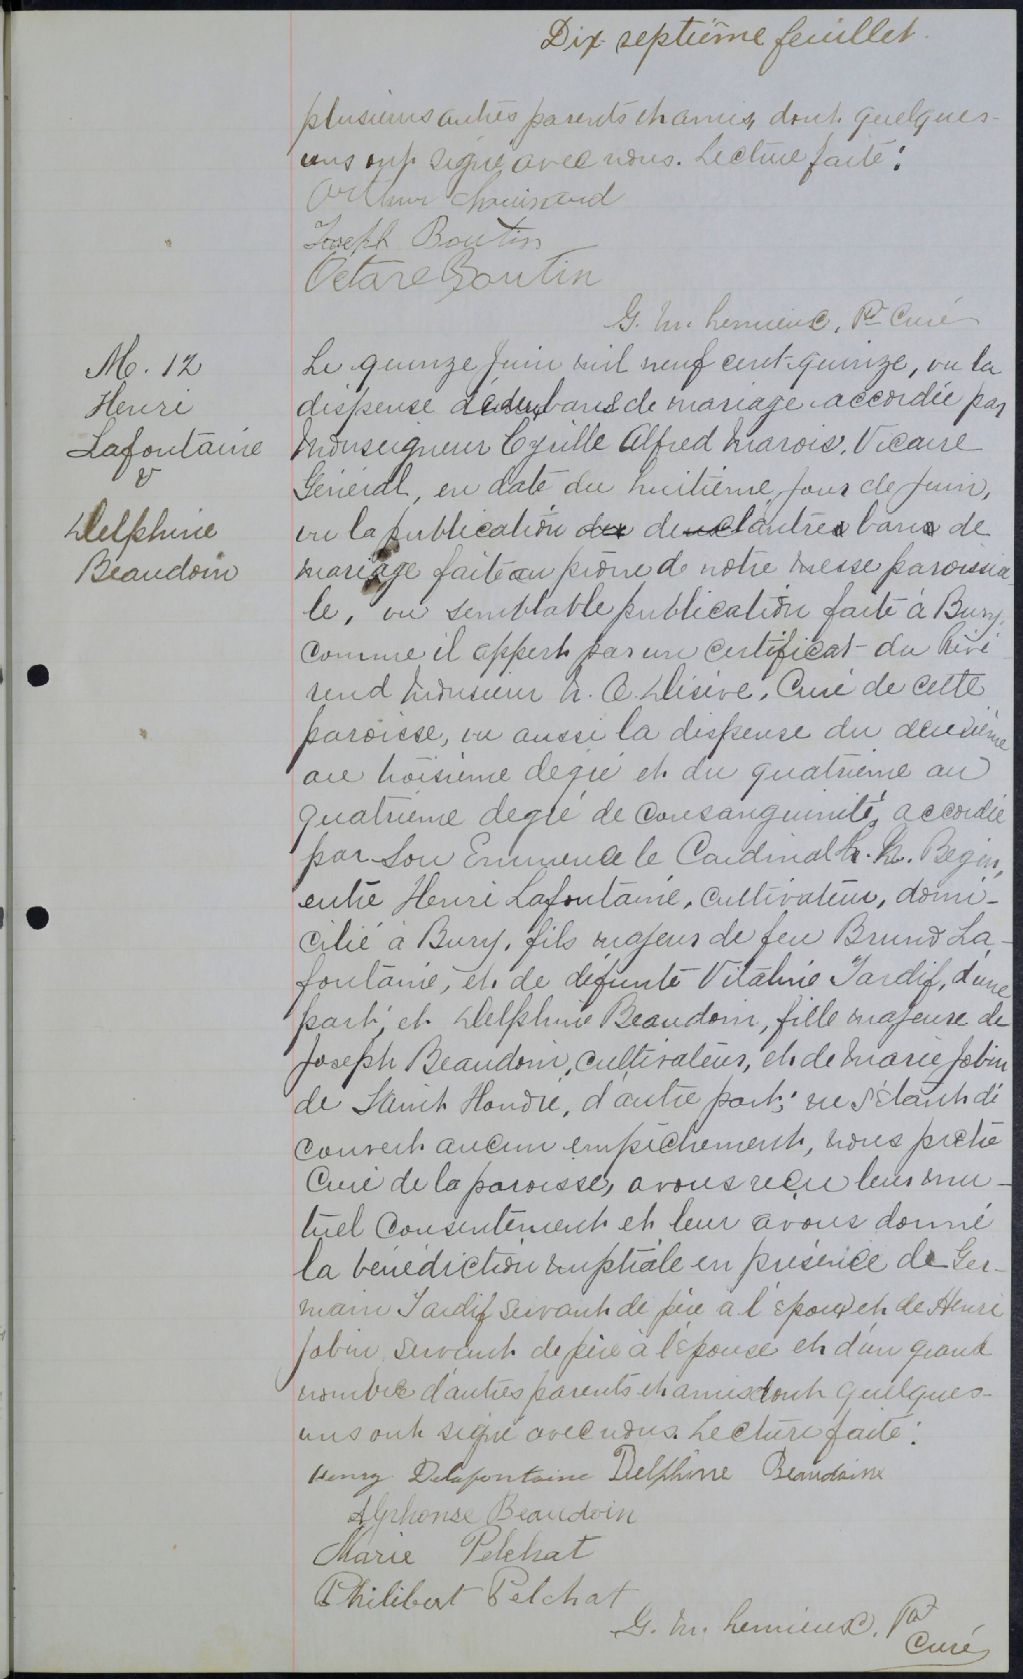 Dix septième feuillet.
plusieurs autres parents et amis, dont quelques-
uns ont signé avec nous. Lecture faite:
Arthur Chouinard
Joseph Boutin
Octave Boutin
G. M. Lemieux, Ptre Curé
M. 12
Henri
Lafontaine
&
Delphine
Beaudoin
Le quinze Juin mil neuf cent-quinze, vu la
dispense de deux bans de mariage accordée par
Monseigneur Cyrille Alfred Marois, Vicaire
Général, en date du huitième jour de Juin,
vu la publication de l'autre ban de
mariage faite au prône de notre messe paroissia-
le, vu semblable publication faite à Bury,
comme il appert par un certificat du Révé-
rend Monsieur Curé de cette
paroisse, vu aussi la dispense du deuxième
au troisième degré et du quatrième au
quatrième degré de consanguinité, accordée
par Son Eminence le Cardinal L. N. Begin,
entre Henri Lafontaine, cultivateur, domi-
cilié à Bury, fils majeur de feu Bruno La-
fontaine, et de défunte Vitaline Tardif, d'une
part; et Delphine Beaudoin, fille majeure de
Joseph Beaudoin, cultivateur, et de Marie Jobin
de Saint Honoré, d'autre part; ne s'étant dé
couvert aucun empêchement, nous prêtre
Curé de la paroisse, avons reçu leur mu-
tuel consentement et leur avons donné
la bénédiction nuptiale en présence de Ger-
main Tardif servant de père à l'époux et de Henri
Jobin servant de père à l'épouse et d'un grand
nombre d'autres parents et amis dont quelques-
uns ont signé avec nous. Lecture faite:
Henry Delafontaine Delphine Beaudoin
Alphonse Beaudoin
Marie Pelchat
Philibert Pelchat
G. M. Lemieux, Ptre
Curé